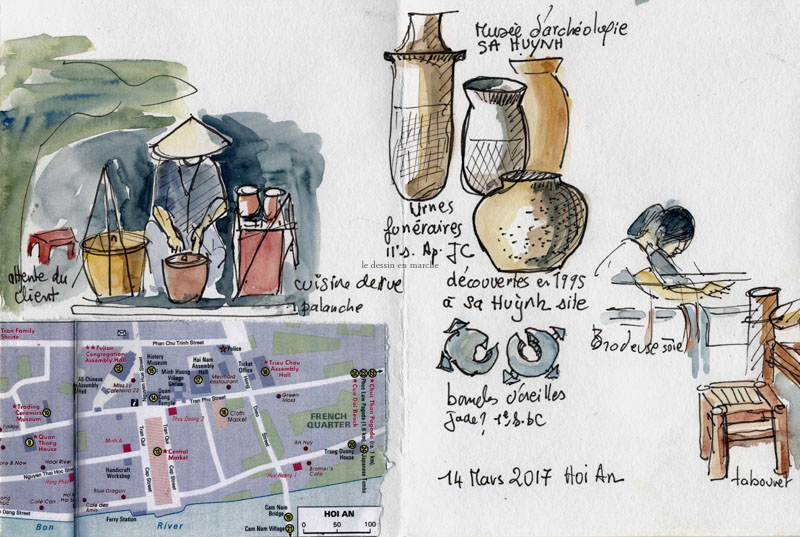 Musée d'archéologie
SA HUỲNH
Urnes
funéraires
II's. Ap. JC
le dessin en marche
attente du
client
cuisine de rue
palanche
découvertes en 1995
à Sa Huỳnh site
Brodeuse soie
boucles d'oreilles
jade? 1°s. bC
14 Mars 2017 Hoi An
tabouret
Tran Family
Shrine
Phan Chu Trinh Street
Fujian
Congregation
Assembly Hall
History
Museum
Hai Nam
Assembly
Hall
Police
Ticket
Office
Trieu Chau
Assembly
Hall
Minh Huong
Village
All-Chinese
Assembly
Hall
Miss Ly
Cafeteria 22
Mermaid
Restaurant
Quan
Cong
Temple
Tran Phu Street
Green
Moss
Trading
Ceramics
Museum
Cloth
Market
FRENCH
QUARTER
Quan
Thang
House
Central
Market
An Huy
Trung Duong
House
Nguyen Thai Hoc Street
Hoai River
Handicraft
Workshop
Brother's
Cafe
Blue Dragon
Cafe Can
Cafe des
Amis
Cam Nam
Bridge
Cam Nam Village
Ferry Station
Bon
River
HOI AN
0
50
100